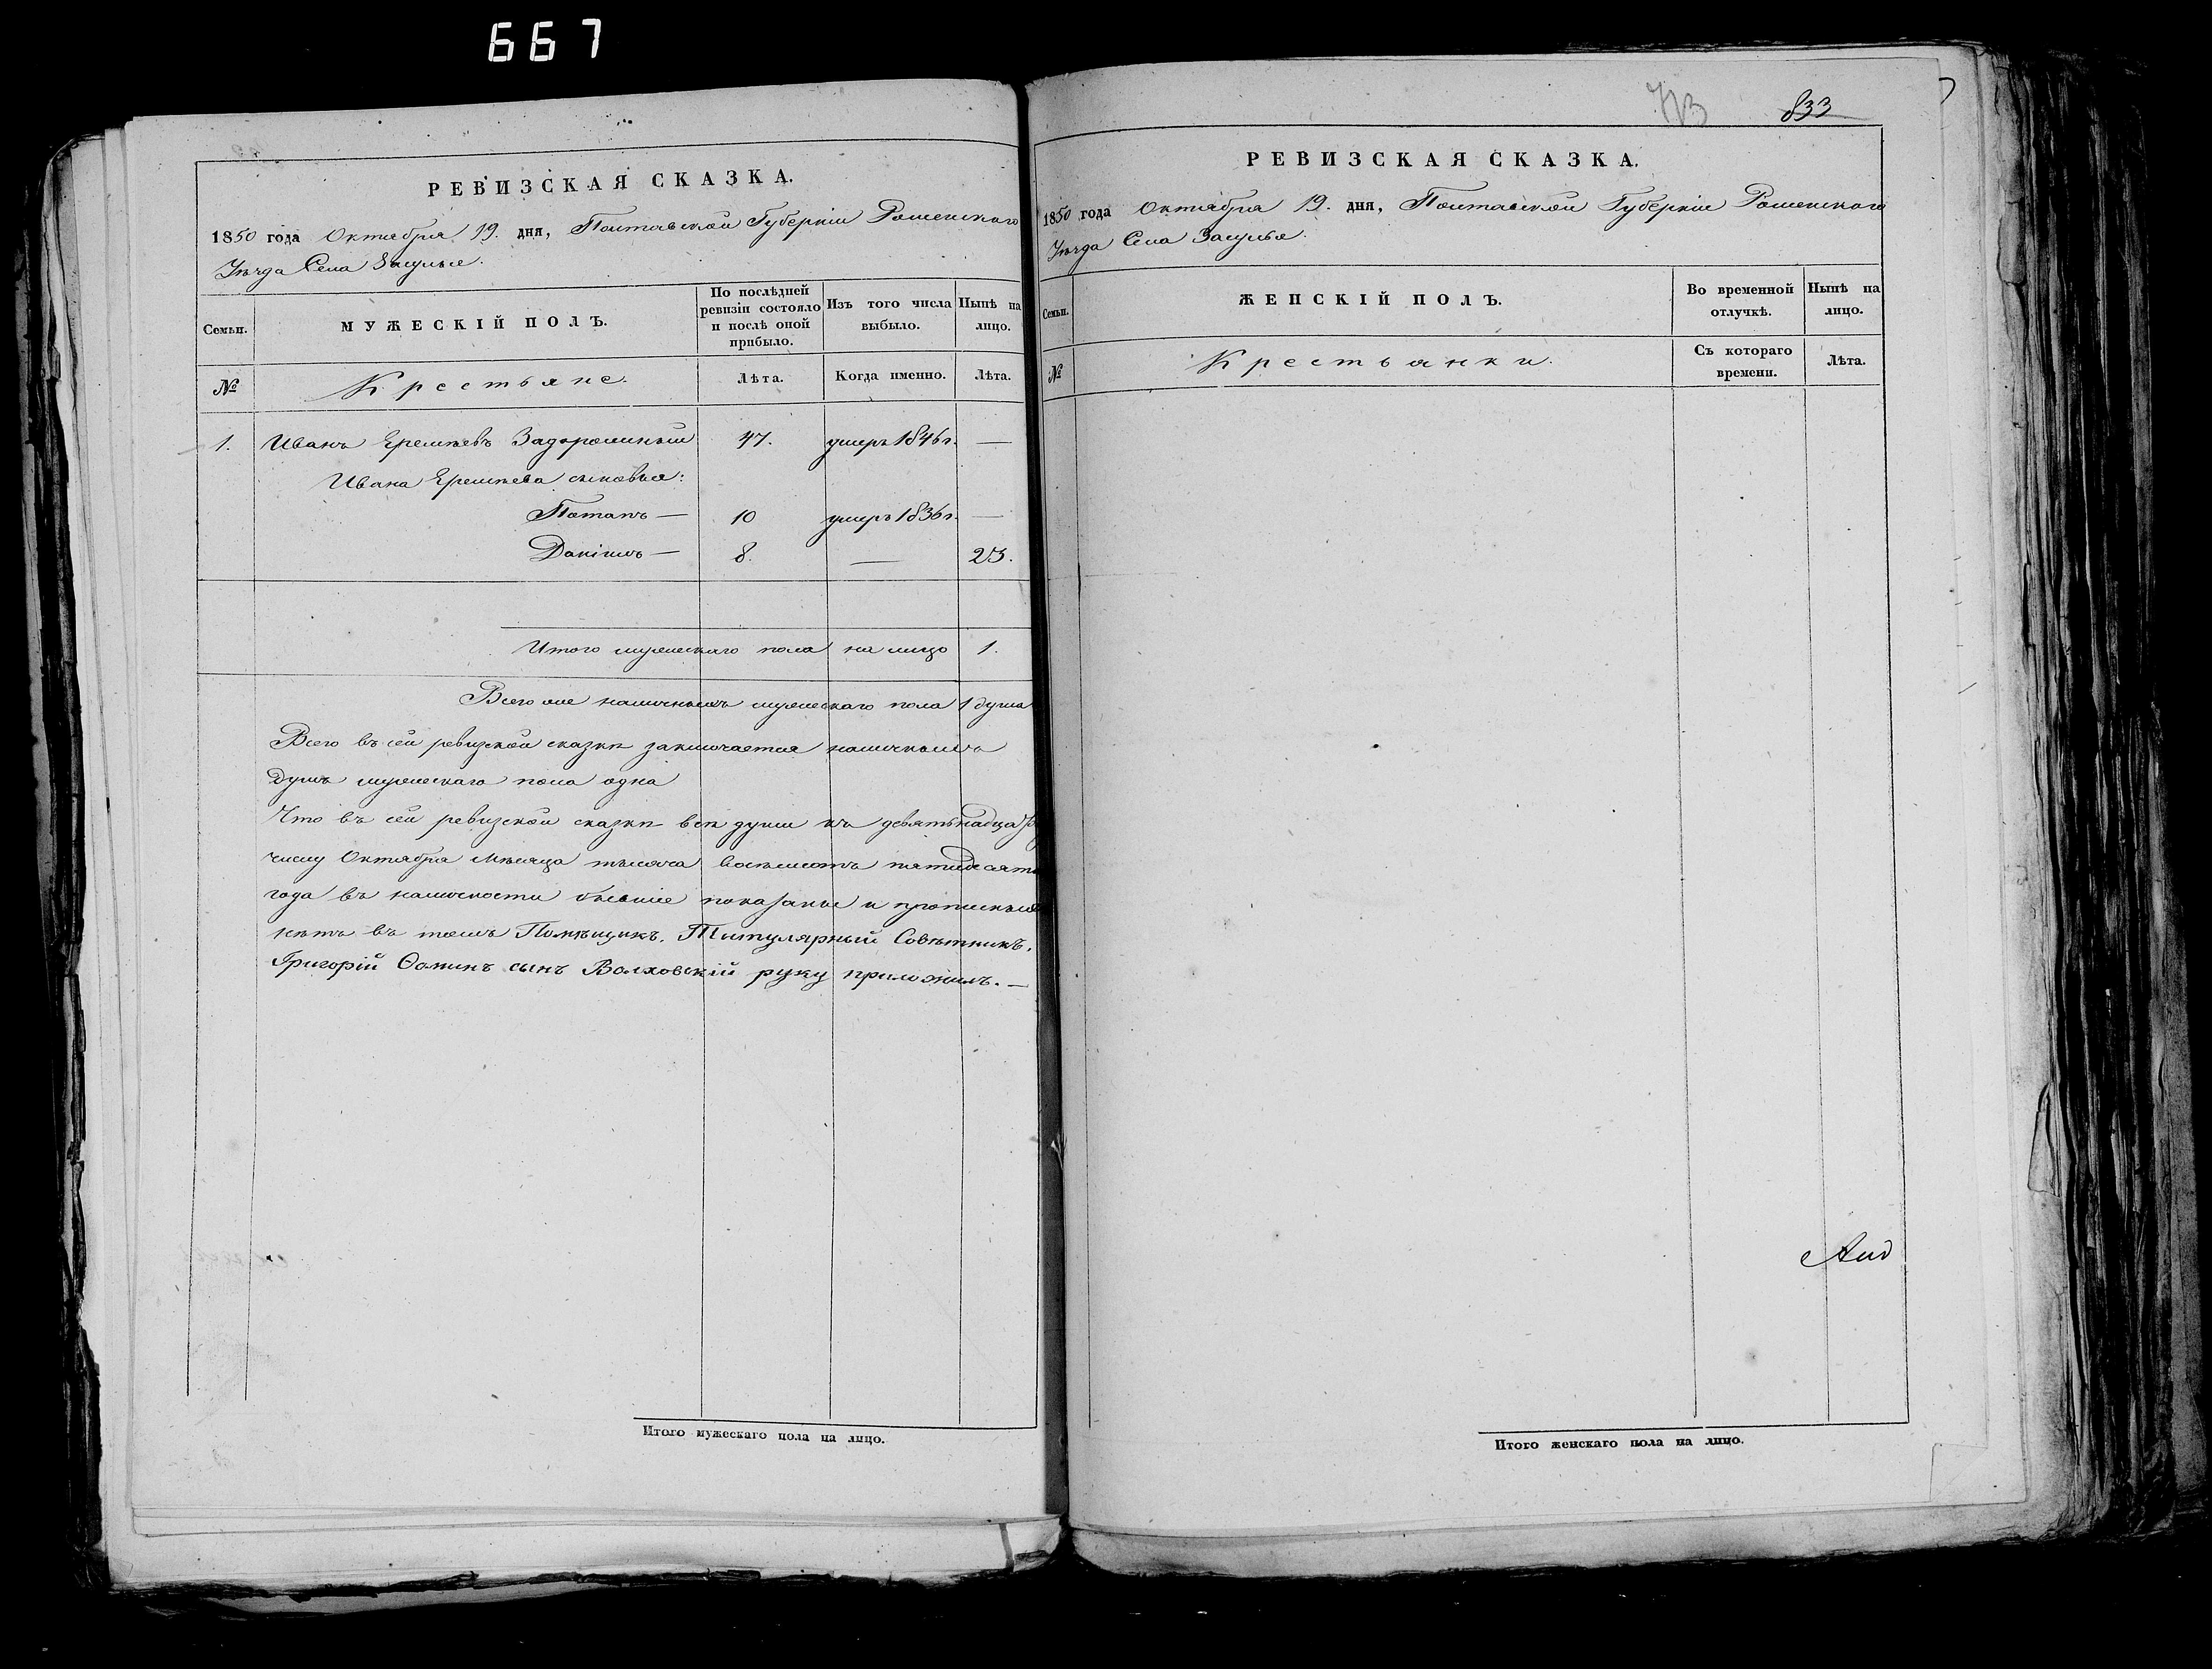 667
РЕВИЗСКАЯ СКАЗКА.
1850 года Октября 19. дня, Полтавской Губерніи Роменскаго
Уѣзда Села Засулья.
Семьи.
МУЖЕСКІЙ ПОЛЪ.
По послѣдней ревизіи состояло и послѣ оной прибыло.
Изъ того числа выбыло.
Нынѣ на лицо.
№
Крестьяне.
Лѣта.
Когда именно.
Лѣта.
1. Иванъ Еремѣевъ Задорожный 47. умеръ 1846 г. —
Ивана Еремѣева сыновья:
Потапъ — 10 умеръ 1836 г. —
Данiилъ — 8. — 23.
Итого мужескаго пола на лицо 1.
Всего же наличныхъ мужескаго пола 1 душа
Всего въ сей ревизской сказкѣ заключается наличныхъ
душъ мужескаго пола одна
Что въ сей ревизской сказкѣ всѣ души къ девятьнадца
числу Октября мѣсяца тысяча восемьсотъ пятидесято
года въ наличности бывшіе показаны и
нѣтъ въ томъ Помѣщикъ, Титулярный Совѣтникъ.
Григорій Ѳоминъ сынъ Волховскій руку приложилъ. —
Итого мужескаго пола на лицо.
833
РЕВИЗСКАЯ СКАЗКА.
1850 года Октября 19. дня, Полтавской Губерніи Роменскаго
Уѣзда Села Засулья.
Семьи.
ЖЕНСКІЙ ПОЛЪ.
Во временной отлучкѣ.
Нынѣ на лицо.
№
Крестьянки.
Съ котораго времени.
Лѣта.
Итого женскаго пола на лицо.